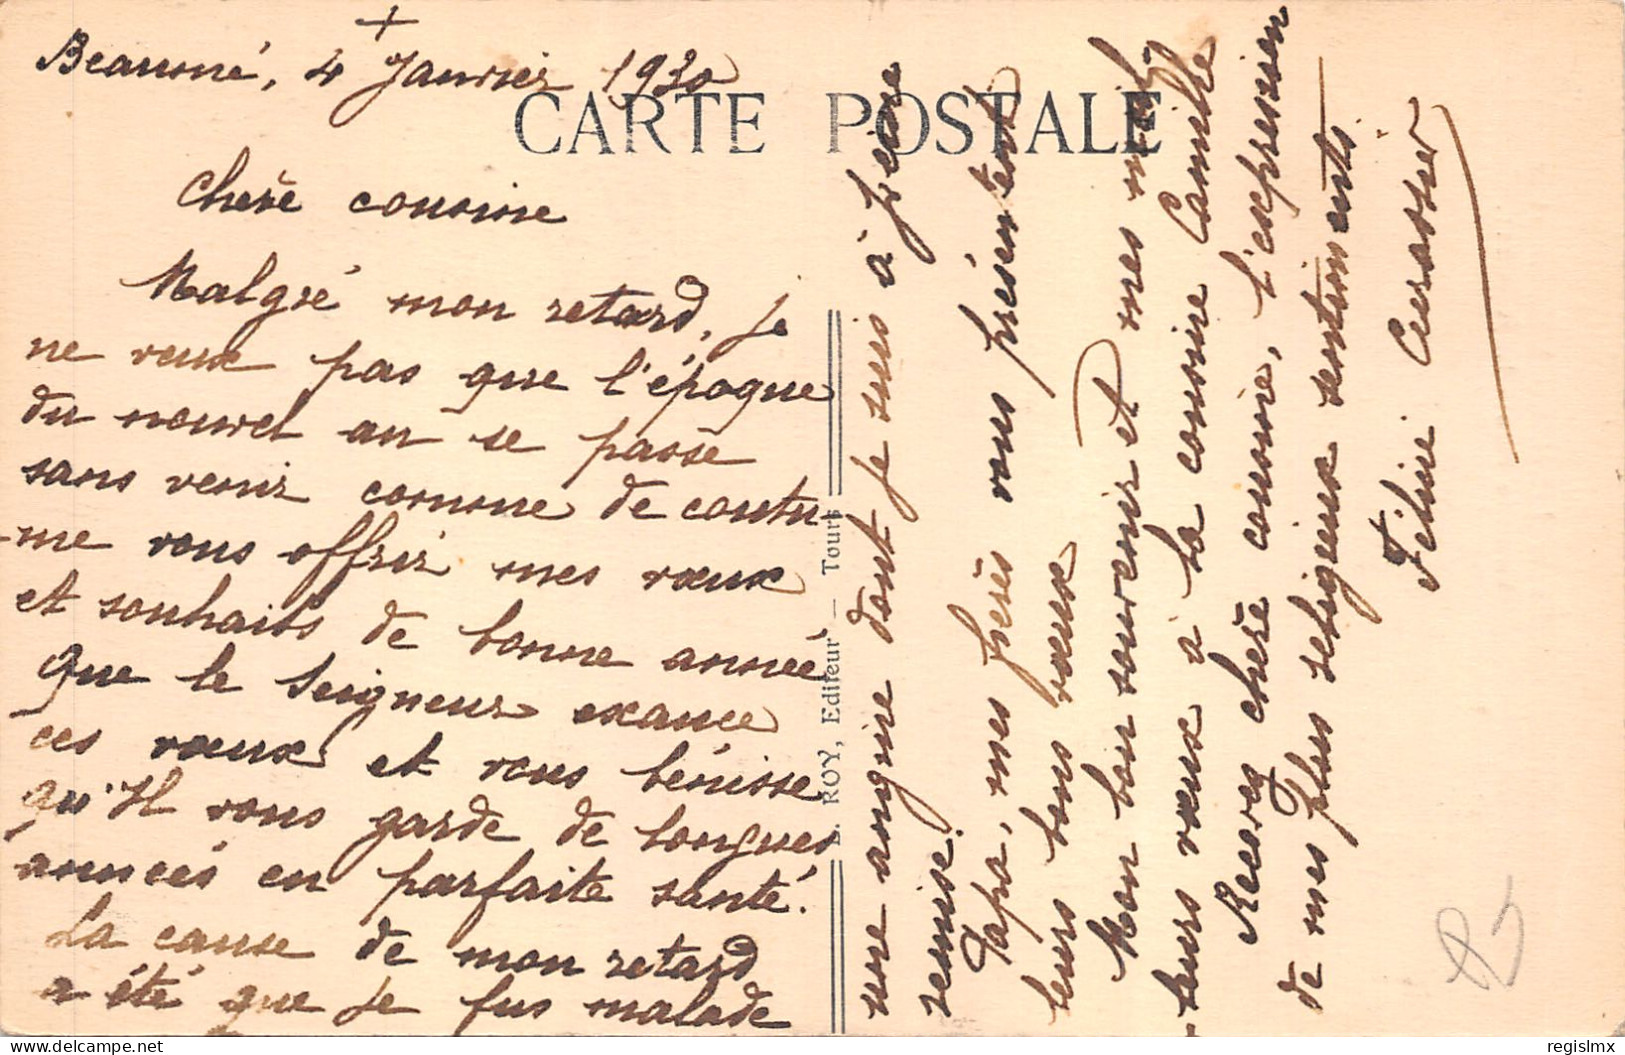 4 Janvier 1930
CARTE POSTALE
Chère cousine
Malgré mon retard, je
ne veux pas que l'époque
du nouvel an se passe
sans venir comme de coutu-
-me vous offrir mes vœux
et souhaits de bonne année
Que le Seigneur exauce
ces vœux et vous bénisse
qu'Il vous garde de longues
années en parfaite santé.
La cause de mon retard
a été que je fus malade
ROY, Editeur — Tours
une angine dont je suis à peine
remise.
Papa, mes frères vous présentent
leurs bons vœux
Mon bon souvenir et mes meil-
-leurs vœux à la cousine Camille
Recevez chère cousine, l'expression
de mes plus religieux sentiments
regislmx